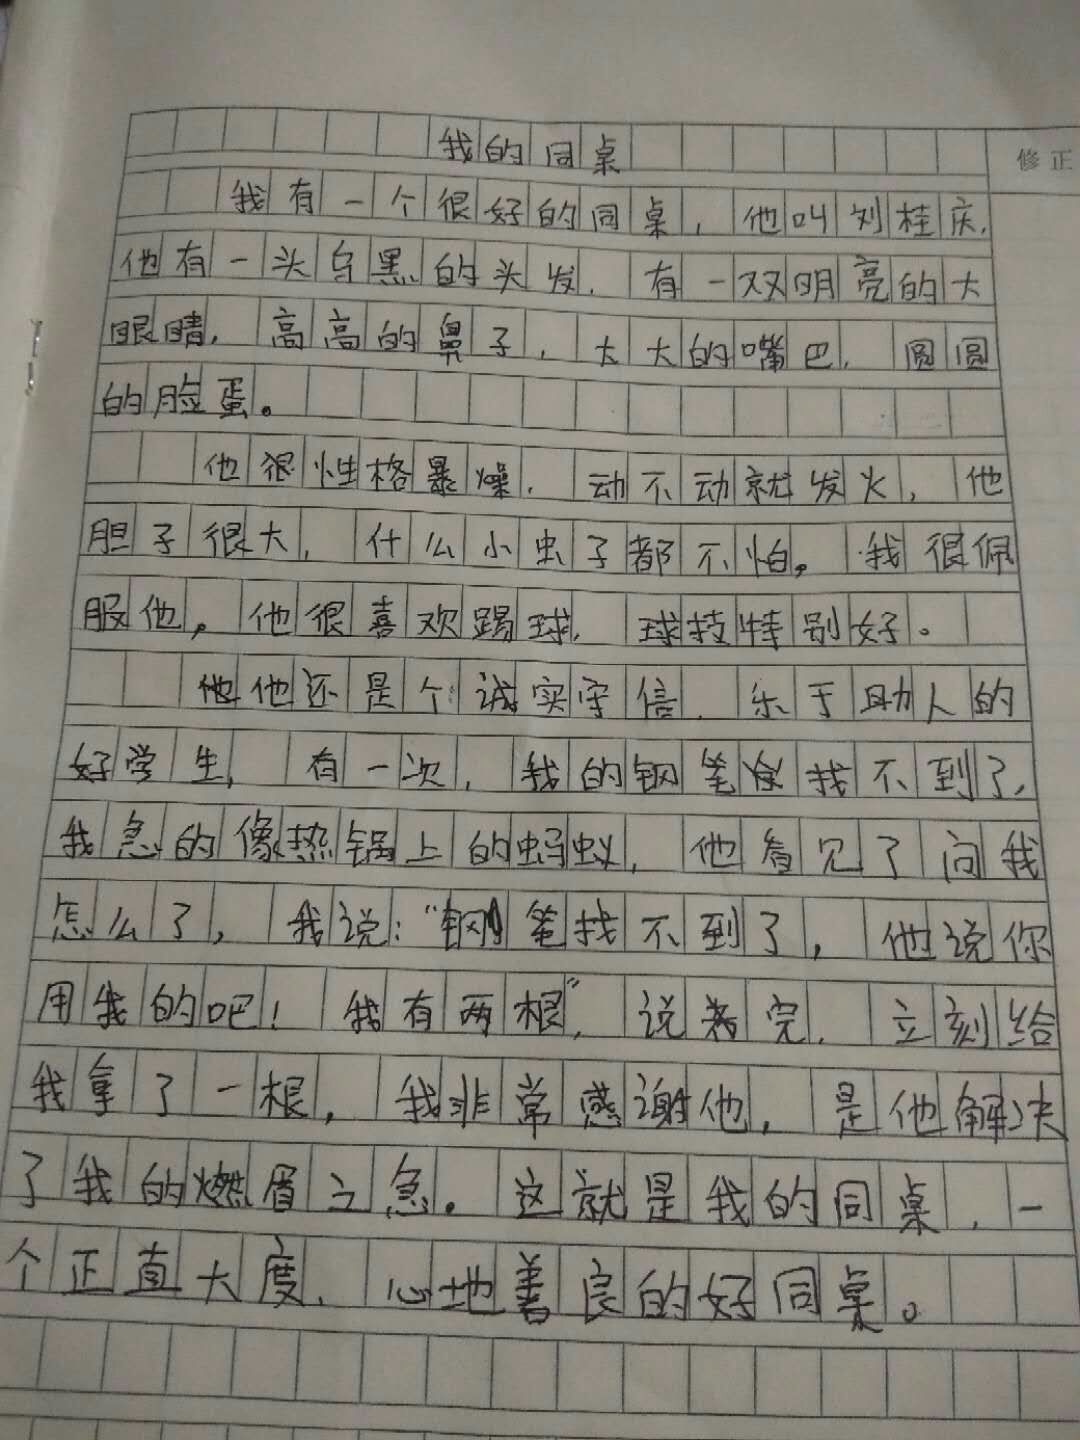 我的同桌
修正
我有一个很好的同桌，他叫刘桂庆，
他有一头乌黑的头发，有一双明亮的大
眼睛，高高的鼻子，大大的嘴巴，圆圆
的脸蛋。
他很性格暴燥，动不动就发火，他
胆子很大，什么小虫子都不怕。我很佩
服他，他很喜欢踢球，球技特别好。
他他还是个诚实守信、乐于助人的
好学生，有一次，我的钢笔找不到了，
我急的像热锅上的蚂蚁，他看见了问我
怎么了，我说：“钢笔找不到了，他说你
用我的吧！我有两根”，说完，立刻给
我拿了一根，我非常感谢他，是他解决
了我的燃眉之急。这就是我的同桌，一
个正直大度、心地善良的好同桌。